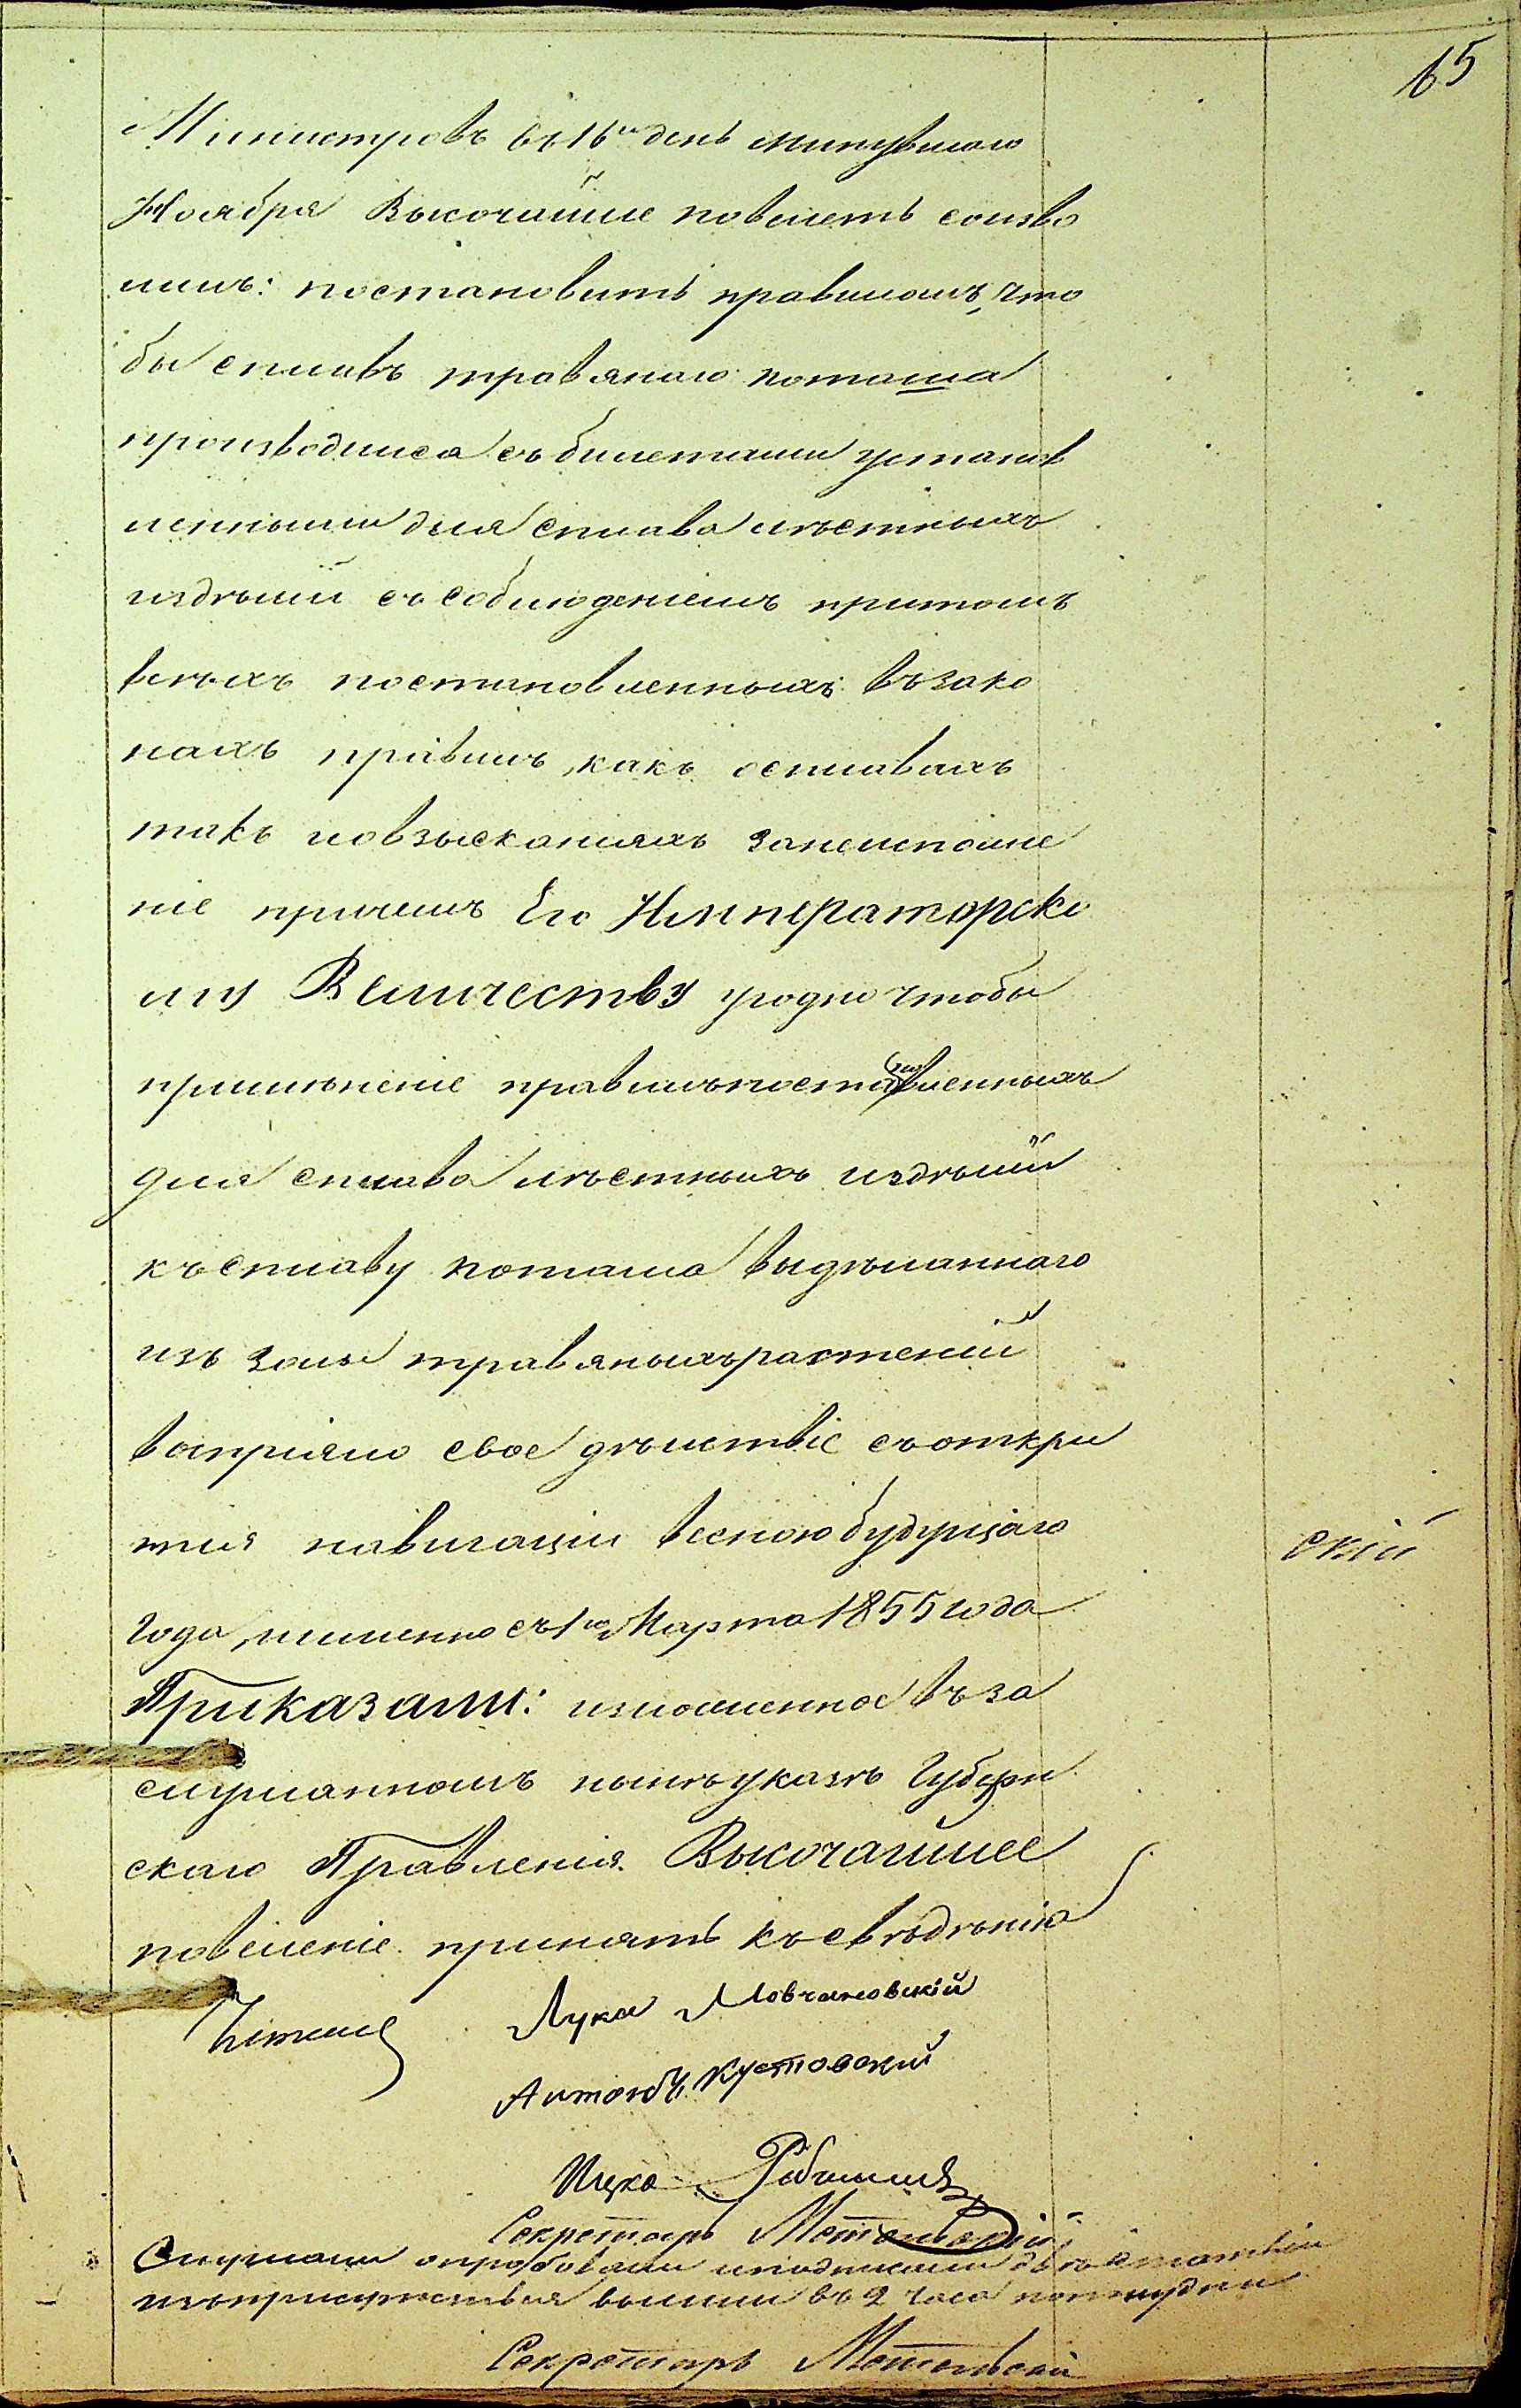 65
Министровъ въ 16й день минувшаго
Ноября Высочайше повелеть соизво
лилъ: постановить правиломъ, что
бы сплавъ травянаго поташа
производился съ билетами установ
ленными для сплава лѣсныхъ
издѣлий съ соблюденіемъ притомъ
всѣхъ постановленныхъ въ зако
нахъ правилъ, какъ осплавахъ
такъ и о взысканияхъ за неисполне
ніе причемъ Его Императорско
му Величеству угодно чтобы
примѣненіе правилъ постановленныхъ
для сплава лѣсныхъ издѣлий
къ сплаву поташа выдѣланнаго
изъ золы травяныхъ растений
воспріяло свое дѣиствіе съ откры
тия навигаціи весною будущаго
года, именно съ 1го Марта 1855 года
Приказали: изложенное въ за
слушанномъ ныне указѣ Губерн
скаго Правления Высочайшее
повеленіе принять къ сведѣнію
скій
Лука Мовчановскій
Антонъ Кустовский
Ицко
Секретарь
Слушали опробовали и подписали
изъ присутствия вышли въ 2 часа пополудни
Секретарь